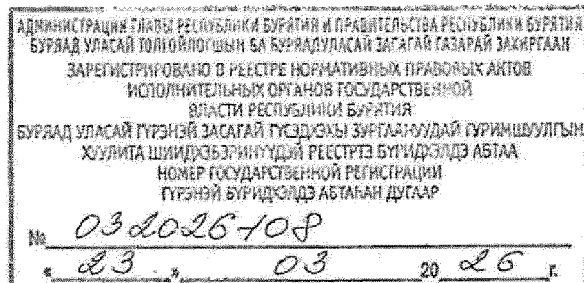 АДМИНИСТРАЦИЯ ГЛАВЫ РЕСПУБЛИКИ БУРЯТИЯ И ПРАВИТЕЛЬСТВА РЕСПУБЛИКИ БУРЯТИЯ
БУРЯАД УЛАСАЙ ТОЛГОЙЛОГШЫН БА БУРЯАД УЛАСАЙ ЗАСАГАЙ ГАЗАРАЙ ЗАХИРГААН
ЗАРЕГИСТРИРОВАНО В РЕЕСТРЕ НОРМАТИВНЫХ ПРАВОВЫХ АКТОВ
ИСПОЛНИТЕЛЬНЫХ ОРГАНОВ ГОСУДАРСТВЕННОЙ
ВЛАСТИ РЕСПУБЛИКИ БУРЯТИЯ
БУРЯАД УЛАСАЙ ГҮРЭНЭЙ ЗАСАГАЙ ГҮСЭДХЭХЫ ЗУРГААНУУДАЙ ГУРИМШУУЛГЫН
ХУУЛИТА ШИИДХЭБЭРИНҮҮДЭЙ РЕЕСТРТЭ БҮРИДХЭЛДЭ АБТАА
НОМЕР ГОСУДАРСТВЕННОЙ РЕГИСТРАЦИИ
ГҮРЭНЭЙ БҮРИДХЭЛДЭ АБТАҺАН ДУГААР
№ 032026-108
« 23 » 03 20 26 г.